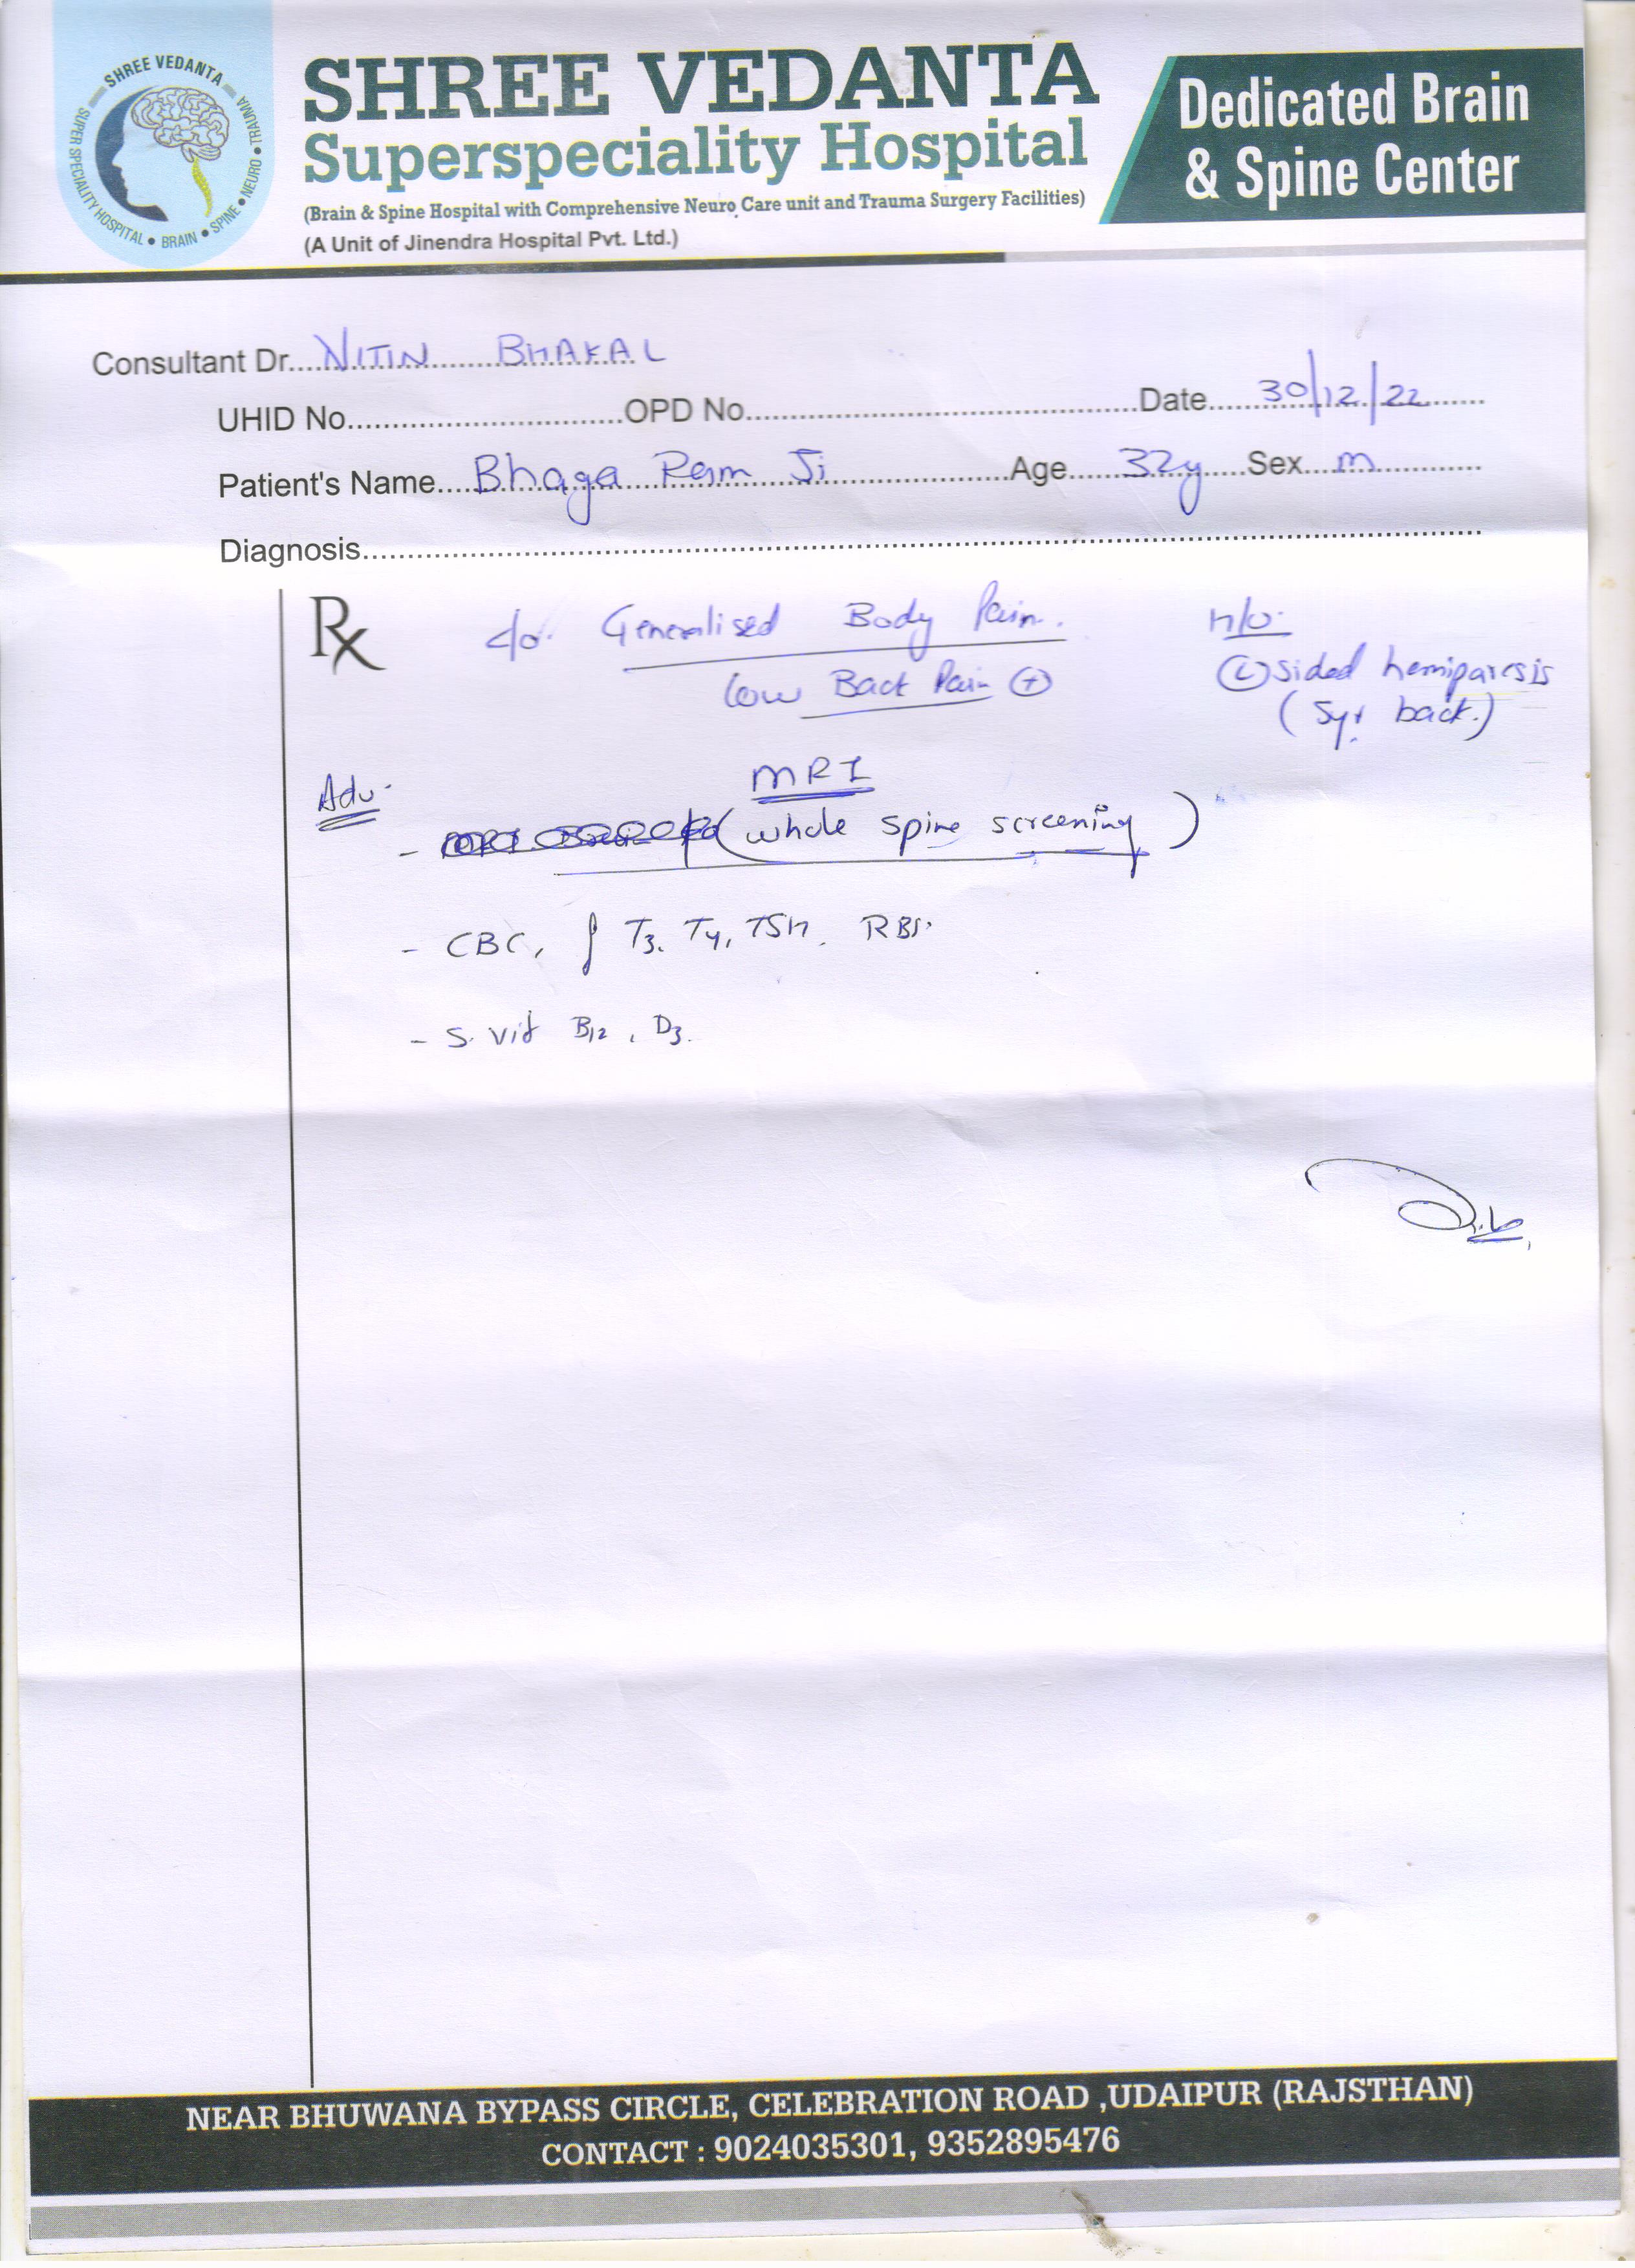 SHREE VEDANTA
SUPER SPECIALITY HOSPITAL • BRAIN • SPINE • NEURO • TRAUMA
SHREE VEDANTA
Superspeciality Hospital
(Brain & Spine Hospital with Comprehensive Neuro Care unit and Trauma Surgery Facilities)
(A Unit of Jinendra Hospital Pvt. Ltd.)
Dedicated Brain
& Spine Center
Consultant Dr. NITIN BHAKAL
UHID No. OPD No. Date 30/12/22
Patient's Name Bhaga Ram Ji Age 32y Sex m
Diagnosis
Rx c/o. Generalised Body Pain. H/O.
Low Back Pain (+) (L) sided hemiparesis
(5yr back.)
Adv. MRI
- (whole spine screening)
- CBC, T3, T4, TSH, RBS.
- S. Vit B12, D3.
NEAR BHUWANA BYPASS CIRCLE, CELEBRATION ROAD ,UDAIPUR (RAJSTHAN)
CONTACT : 9024035301, 9352895476